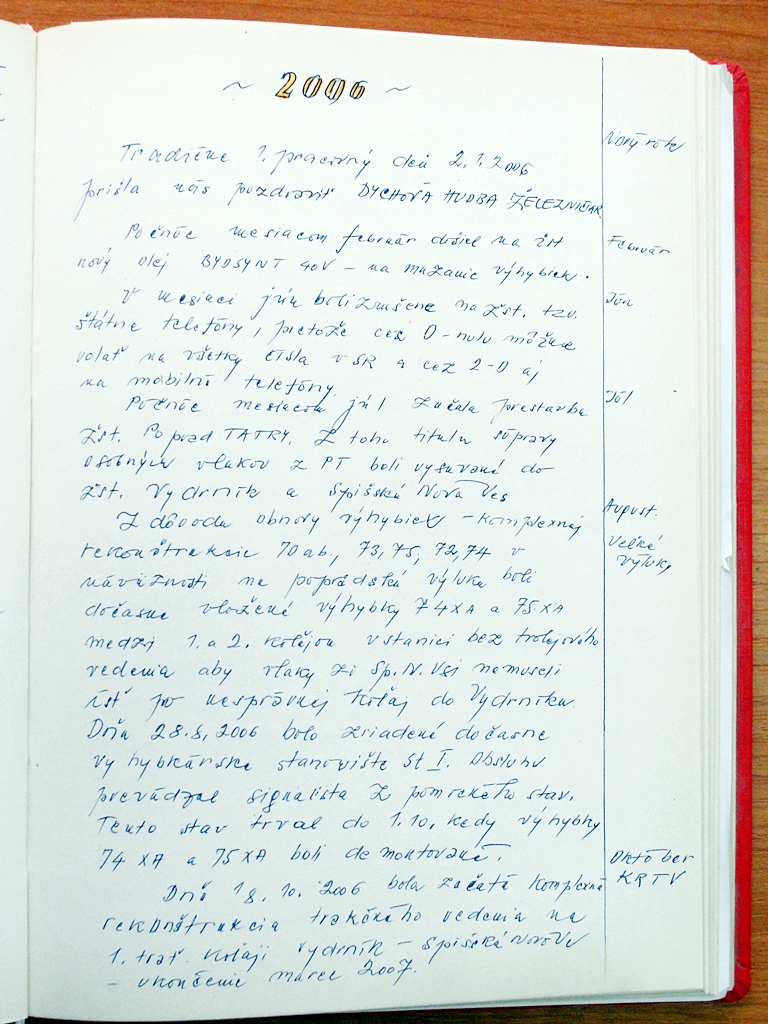 ~ 2006 ~
Nový rok
Tradične 1. pracovný deň 2.1.2006
prišla nás pozdraviť DYCHOVÁ HUDBA ŽELEZNIČAR.
Február
Počnúc mesiacom február došiel na žst
nový olej BYDSYNT 40V – na mazanie výhybiek.
Jún
V mesiaci jún boli zrušené na žst. tzv.
štátne telefóny, pretože cez 0-nulu môžeme
volať na všetky čísla v SR a cez 2-0 aj
na mobilné telefóny.
Júl
Počnúc mesiacom júl začala prestavba
žst. Poprad TATRY. Z toho titulu súpravy
osobných vlakov z PT boli vysúvané do
žst. Vydrník a Spišská Nová Ves
August.
Z dôvodu obnovy výhybiek – komplexnej
Veľké
výluky
rekonštrukcie 70ab, 73,75, 72,74 v
náväznosti na popradskú výluku boli
dočasne vložené výhybky 74XA a 75XA
medzi 1. a 2. koľajou v stanici bez trolejového
vedenia aby vlaky zi Sp.N.Vsi nemuseli
ísť po nesprávnej koľaj do Vydrníku.
Dňa 28.8.2006 bolo zriadené dočasne
výhybkárske stanovište St I. Obsluhu
prevádzal signalista z pomocného stav.
Tento stav trval do 1.10, kedy výhybky
74 XA a 75XA boli demontované.
Október
KRTV
Dňa 18.10.2006 bola začatá komplexná
rekonštrukcia trakčného vedenia na
1. trať. koľaji Vydrník – Spišská Nová Ves
– ukončenie marec 2007.